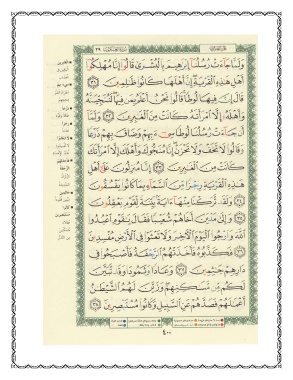 وَلَمَّا جَاءَتْ رُسُلُنَا إِبْرَٰهِيمَ بِالْبُشْرَىٰ قَالُوا إِنَّا مُهْلِكُوا
أَهْلِ هَٰذِهِ الْقَرْيَةِ إِنَّ أَهْلَهَا كَانُوا ظَٰلِمِينَ ٣١
قَالَ إِنَّ فِيهَا لُوطًا قَالُوا نَحْنُ أَعْلَمُ بِمَن فِيهَا لَنُنَجِّيَنَّهُ
وَأَهْلَهُ إِلَّا امْرَأَتَهُ كَانَتْ مِنَ الْغَٰبِرِينَ ٣٢ وَلَمَّا
أَن جَاءَتْ رُسُلُنَا لُوطًا سِيءَ بِهِمْ وَضَاقَ بِهِمْ ذَرْعًا
وَقَالُوا لَا تَخَفْ وَلَا تَحْزَنْ إِنَّا مُنَجُّوكَ وَأَهْلَكَ إِلَّا امْرَأَتَكَ
كَانَتْ مِنَ الْغَٰبِرِينَ ٣٣ إِنَّا مُنزِلُونَ عَلَىٰ أَهْلِ
هَٰذِهِ الْقَرْيَةِ رِجْزًا مِّنَ السَّمَاءِ بِمَا كَانُوا يَفْسُقُونَ
٣٤ وَلَقَد تَّرَكْنَا مِنْهَا ءَايَةً بَيِّنَةً لِّقَوْمٍ يَعْقِلُونَ
٣٥ وَإِلَىٰ مَدْيَنَ أَخَاهُمْ شُعَيْبًا فَقَالَ يَٰقَوْمِ اعْبُدُوا
اللَّهَ وَارْجُوا الْيَوْمَ الْءَاخِرَ وَلَا تَعْثَوْا فِي الْأَرْضِ مُفْسِدِينَ
٣٦ فَكَذَّبُوهُ فَأَخَذَتْهُمُ الرَّجْفَةُ فَأَصْبَحُوا فِي
دَارِهِمْ جَٰثِمِينَ ٣٧ وَعَادًا وَثَمُودَا وَقَد تَّبَيَّنَ
لَكُم مِّن مَّسَٰكِنِهِمْ وَزَيَّنَ لَهُمُ الشَّيْطَٰنُ
أَعْمَٰلَهُمْ فَصَدَّهُمْ عَنِ السَّبِيلِ وَكَانُوا مُسْتَبْصِرِينَ ٣٨
٤٠٠